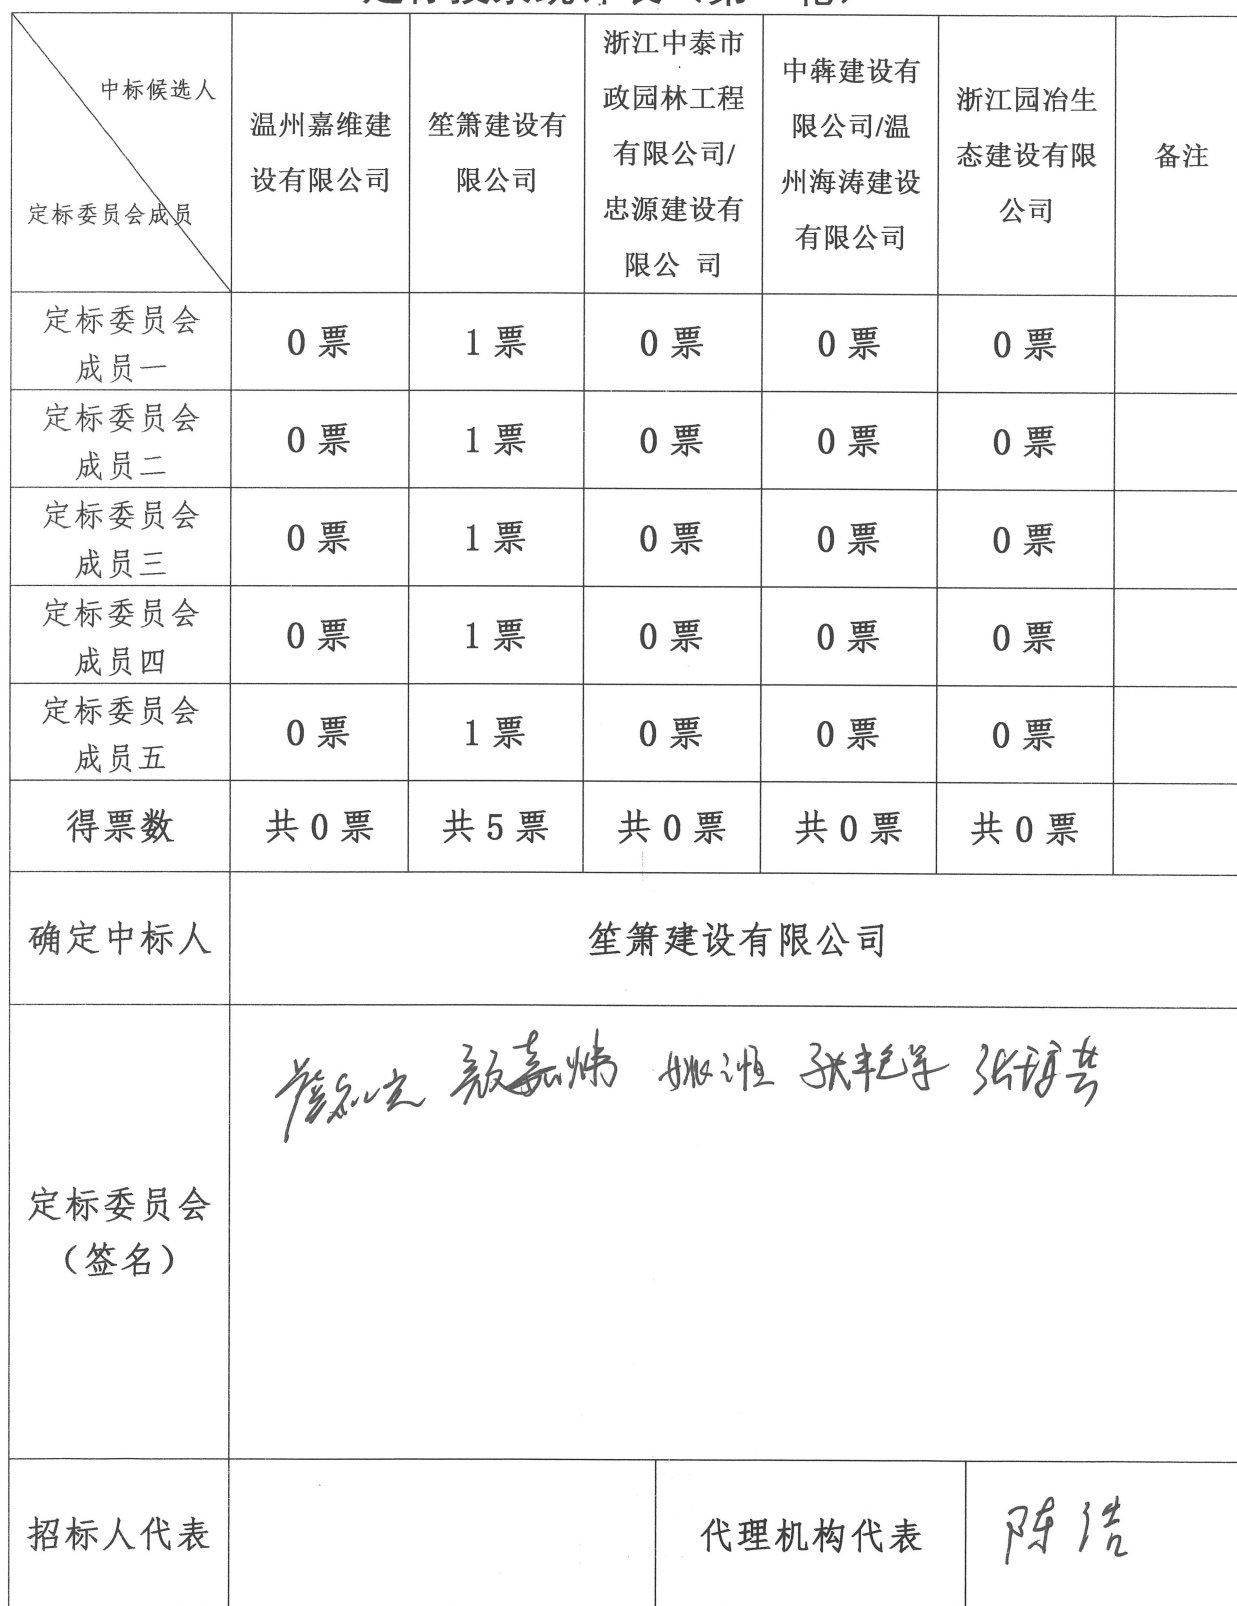 中标候选人
定标委员会成员
温州嘉维建
设有限公司
笙箫建设有
限公司
浙江中泰市
政园林工程
有限公司/
忠源建设有
限公 司
中犇建设有
限公司/温
州海涛建设
有限公司
浙江园冶生
态建设有限
公司
备注
定标委员会
成员一
0票
1票
0票
0票
0票
定标委员会
成员二
0票
1票
0票
0票
0票
定标委员会
成员三
0票
1票
0票
0票
0票
定标委员会
成员四
0票
1票
0票
0票
0票
定标委员会
成员五
0票
1票
0票
0票
0票
得票数
共0票
共5票
共0票
共0票
共0票
确定中标人
笙箫建设有限公司
定标委员会
(签名)
招标人代表
代理机构代表
陈浩